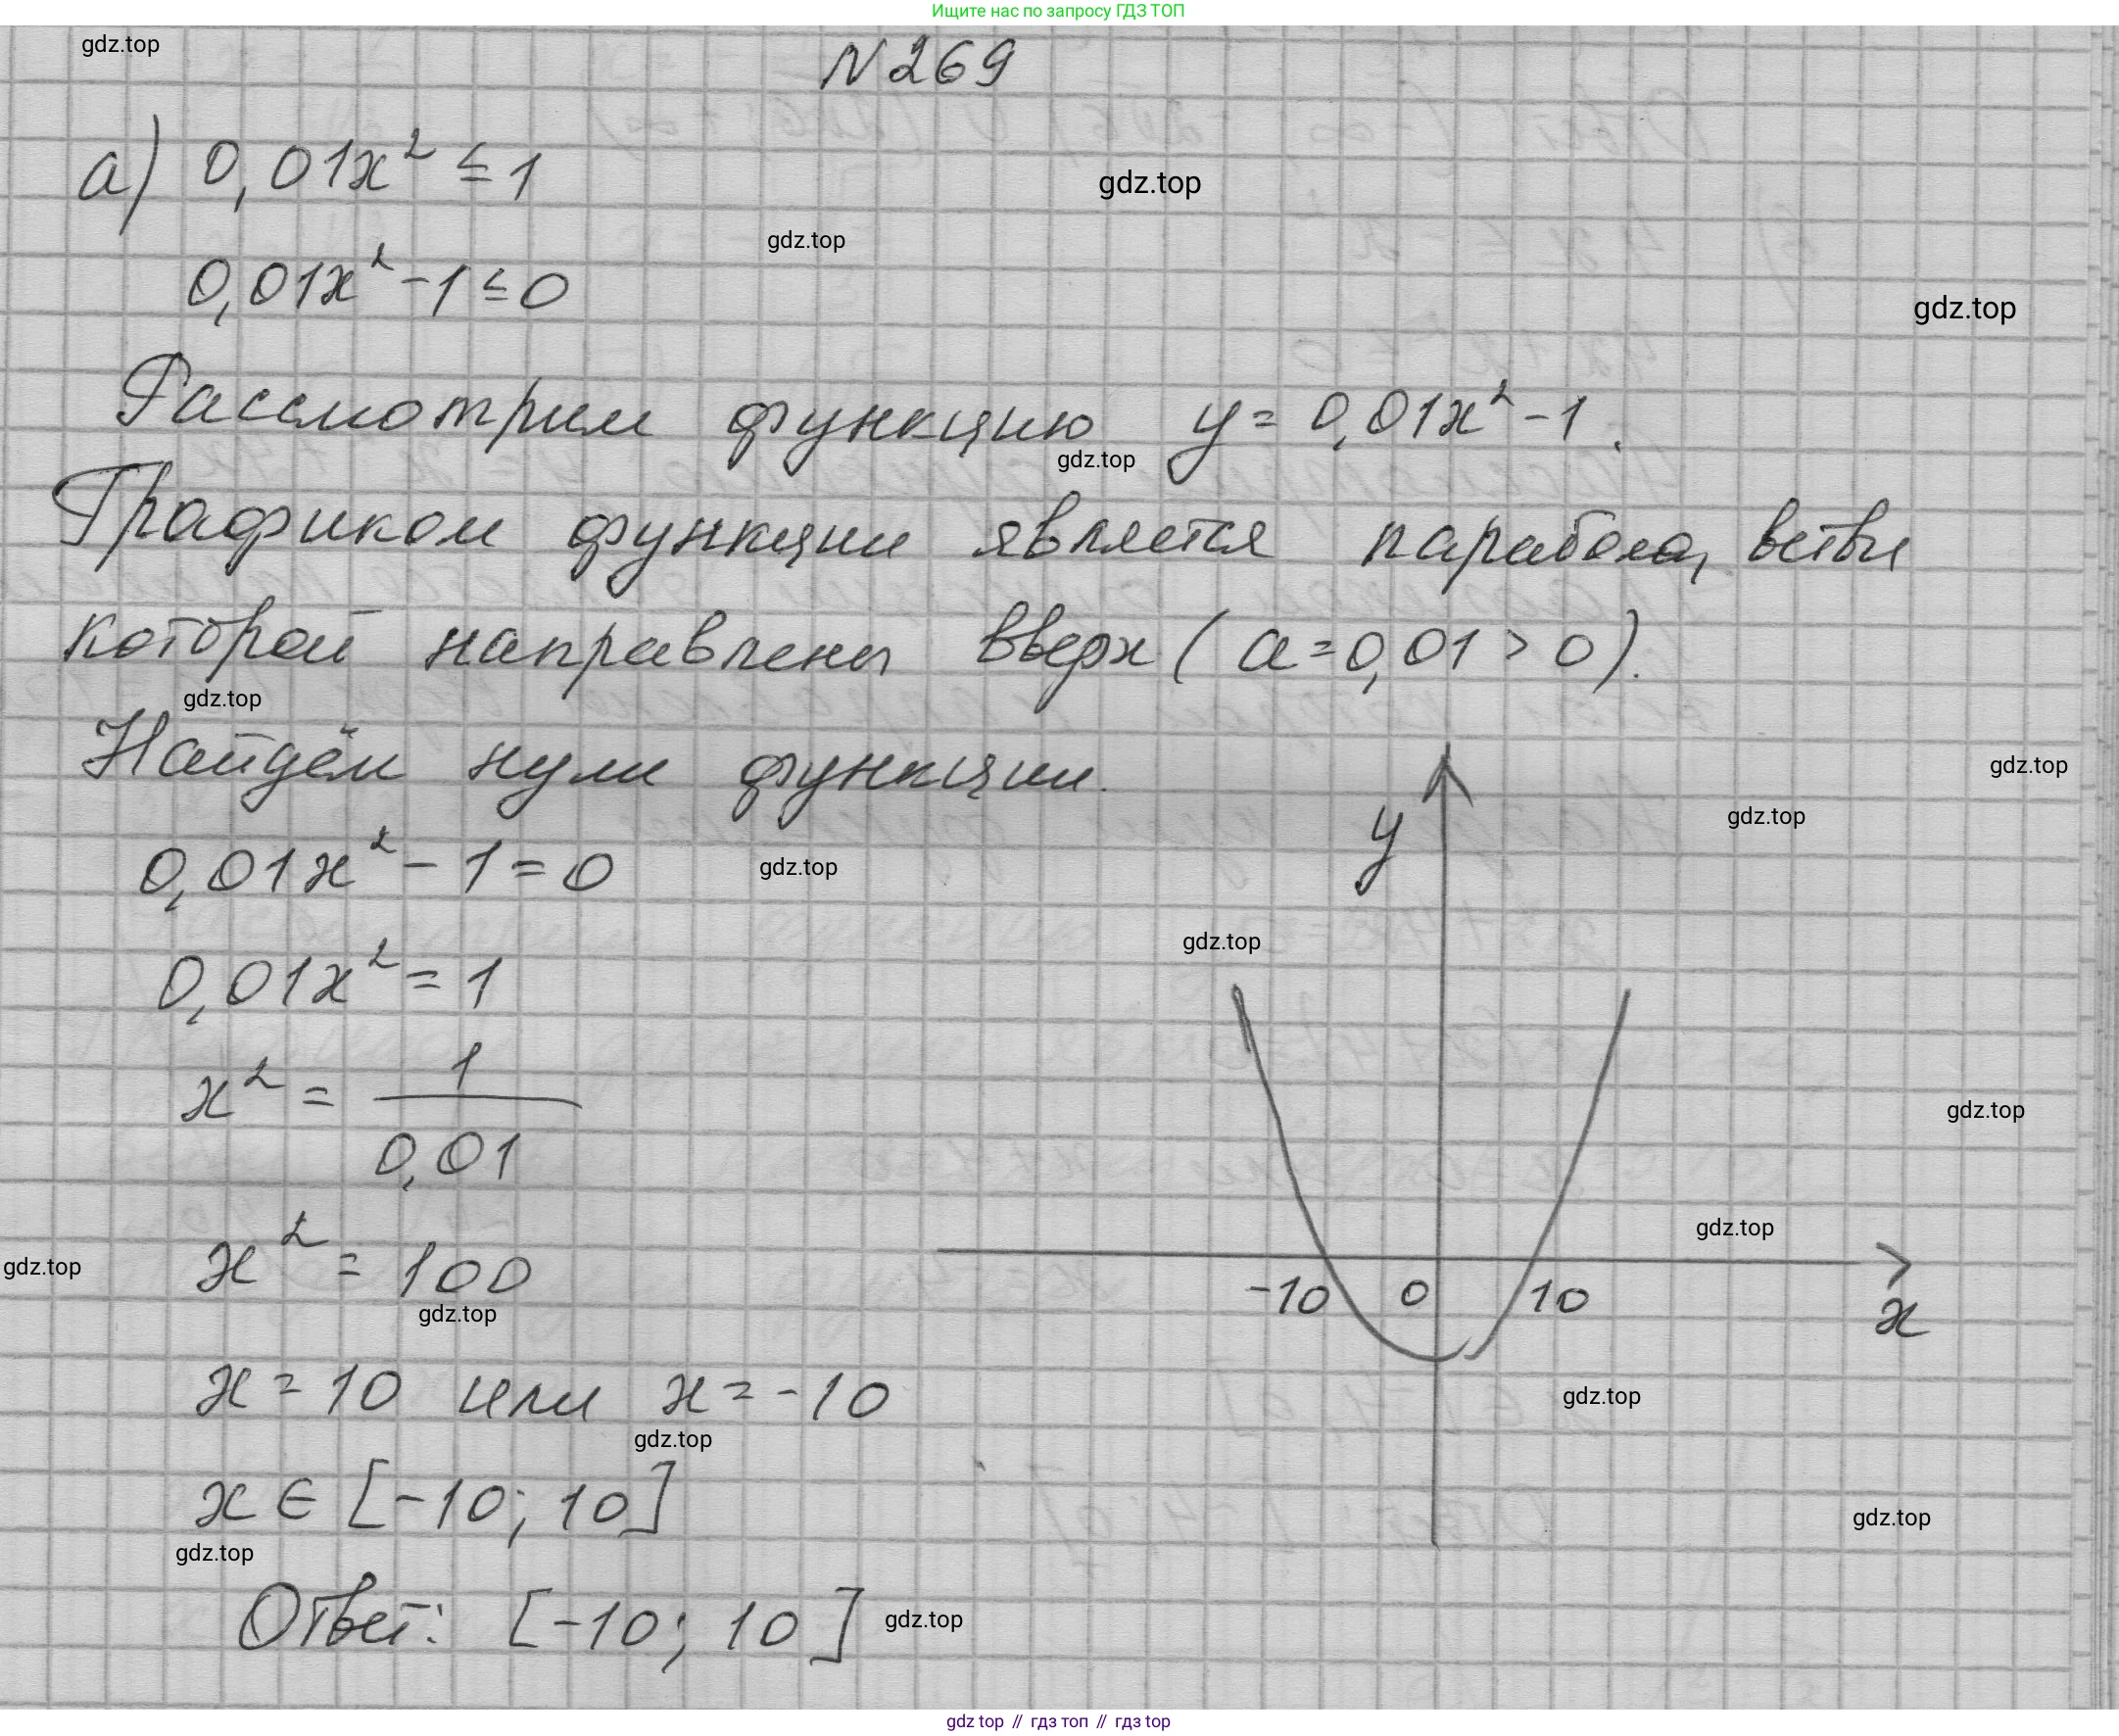 Ищите нас по запросу ГДЗ ТОП
gdz.top
N 269
а) 0,01x² ≤ 1
gdz.top
gdz.top
0,01x² - 1 ≤ 0
gdz.top
Рассмотрим функцию y = 0,01x² - 1.
gdz.top
Графиком функции является парабола, ветви
которой направлены вверх (a = 0,01 > 0).
gdz.top
Найдём нули функции.
gdz.top
y
gdz.top
0,01x² - 1 = 0
gdz.top
gdz.top
0,01x² = 1
x² = 1 / 0,01
gdz.top
gdz.top
gdz.top
x² = 100
-10 0 10
x
gdz.top
x = 10 или x = -10
gdz.top
gdz.top
x ∈ [-10; 10]
gdz.top
gdz.top
Ответ: [-10; 10]
gdz.top
gdz top // гдз топ // гдз top